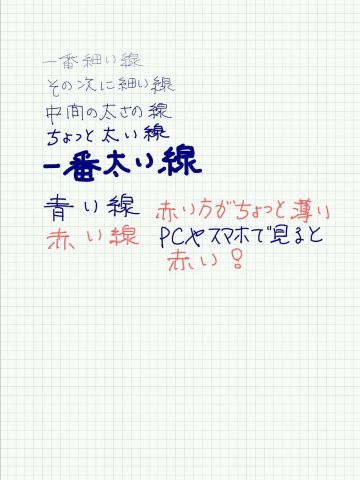 一番細い線
その次に細い線
中間の太さの線
ちょっと太い線
一番太い線
青い線 赤い方がちょっと薄い
赤い線 PCやスマホで見ると
赤い!